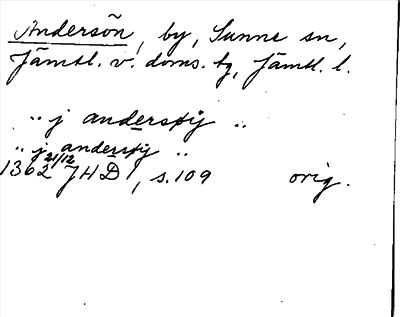 Andersön, by, Sunne sn,
Jämtl. v. doms. tg, Jämtl. l.
.. j andersøy ..
.. j andersøy ..
1362 21/12 JHD 1, s. 109 orig.